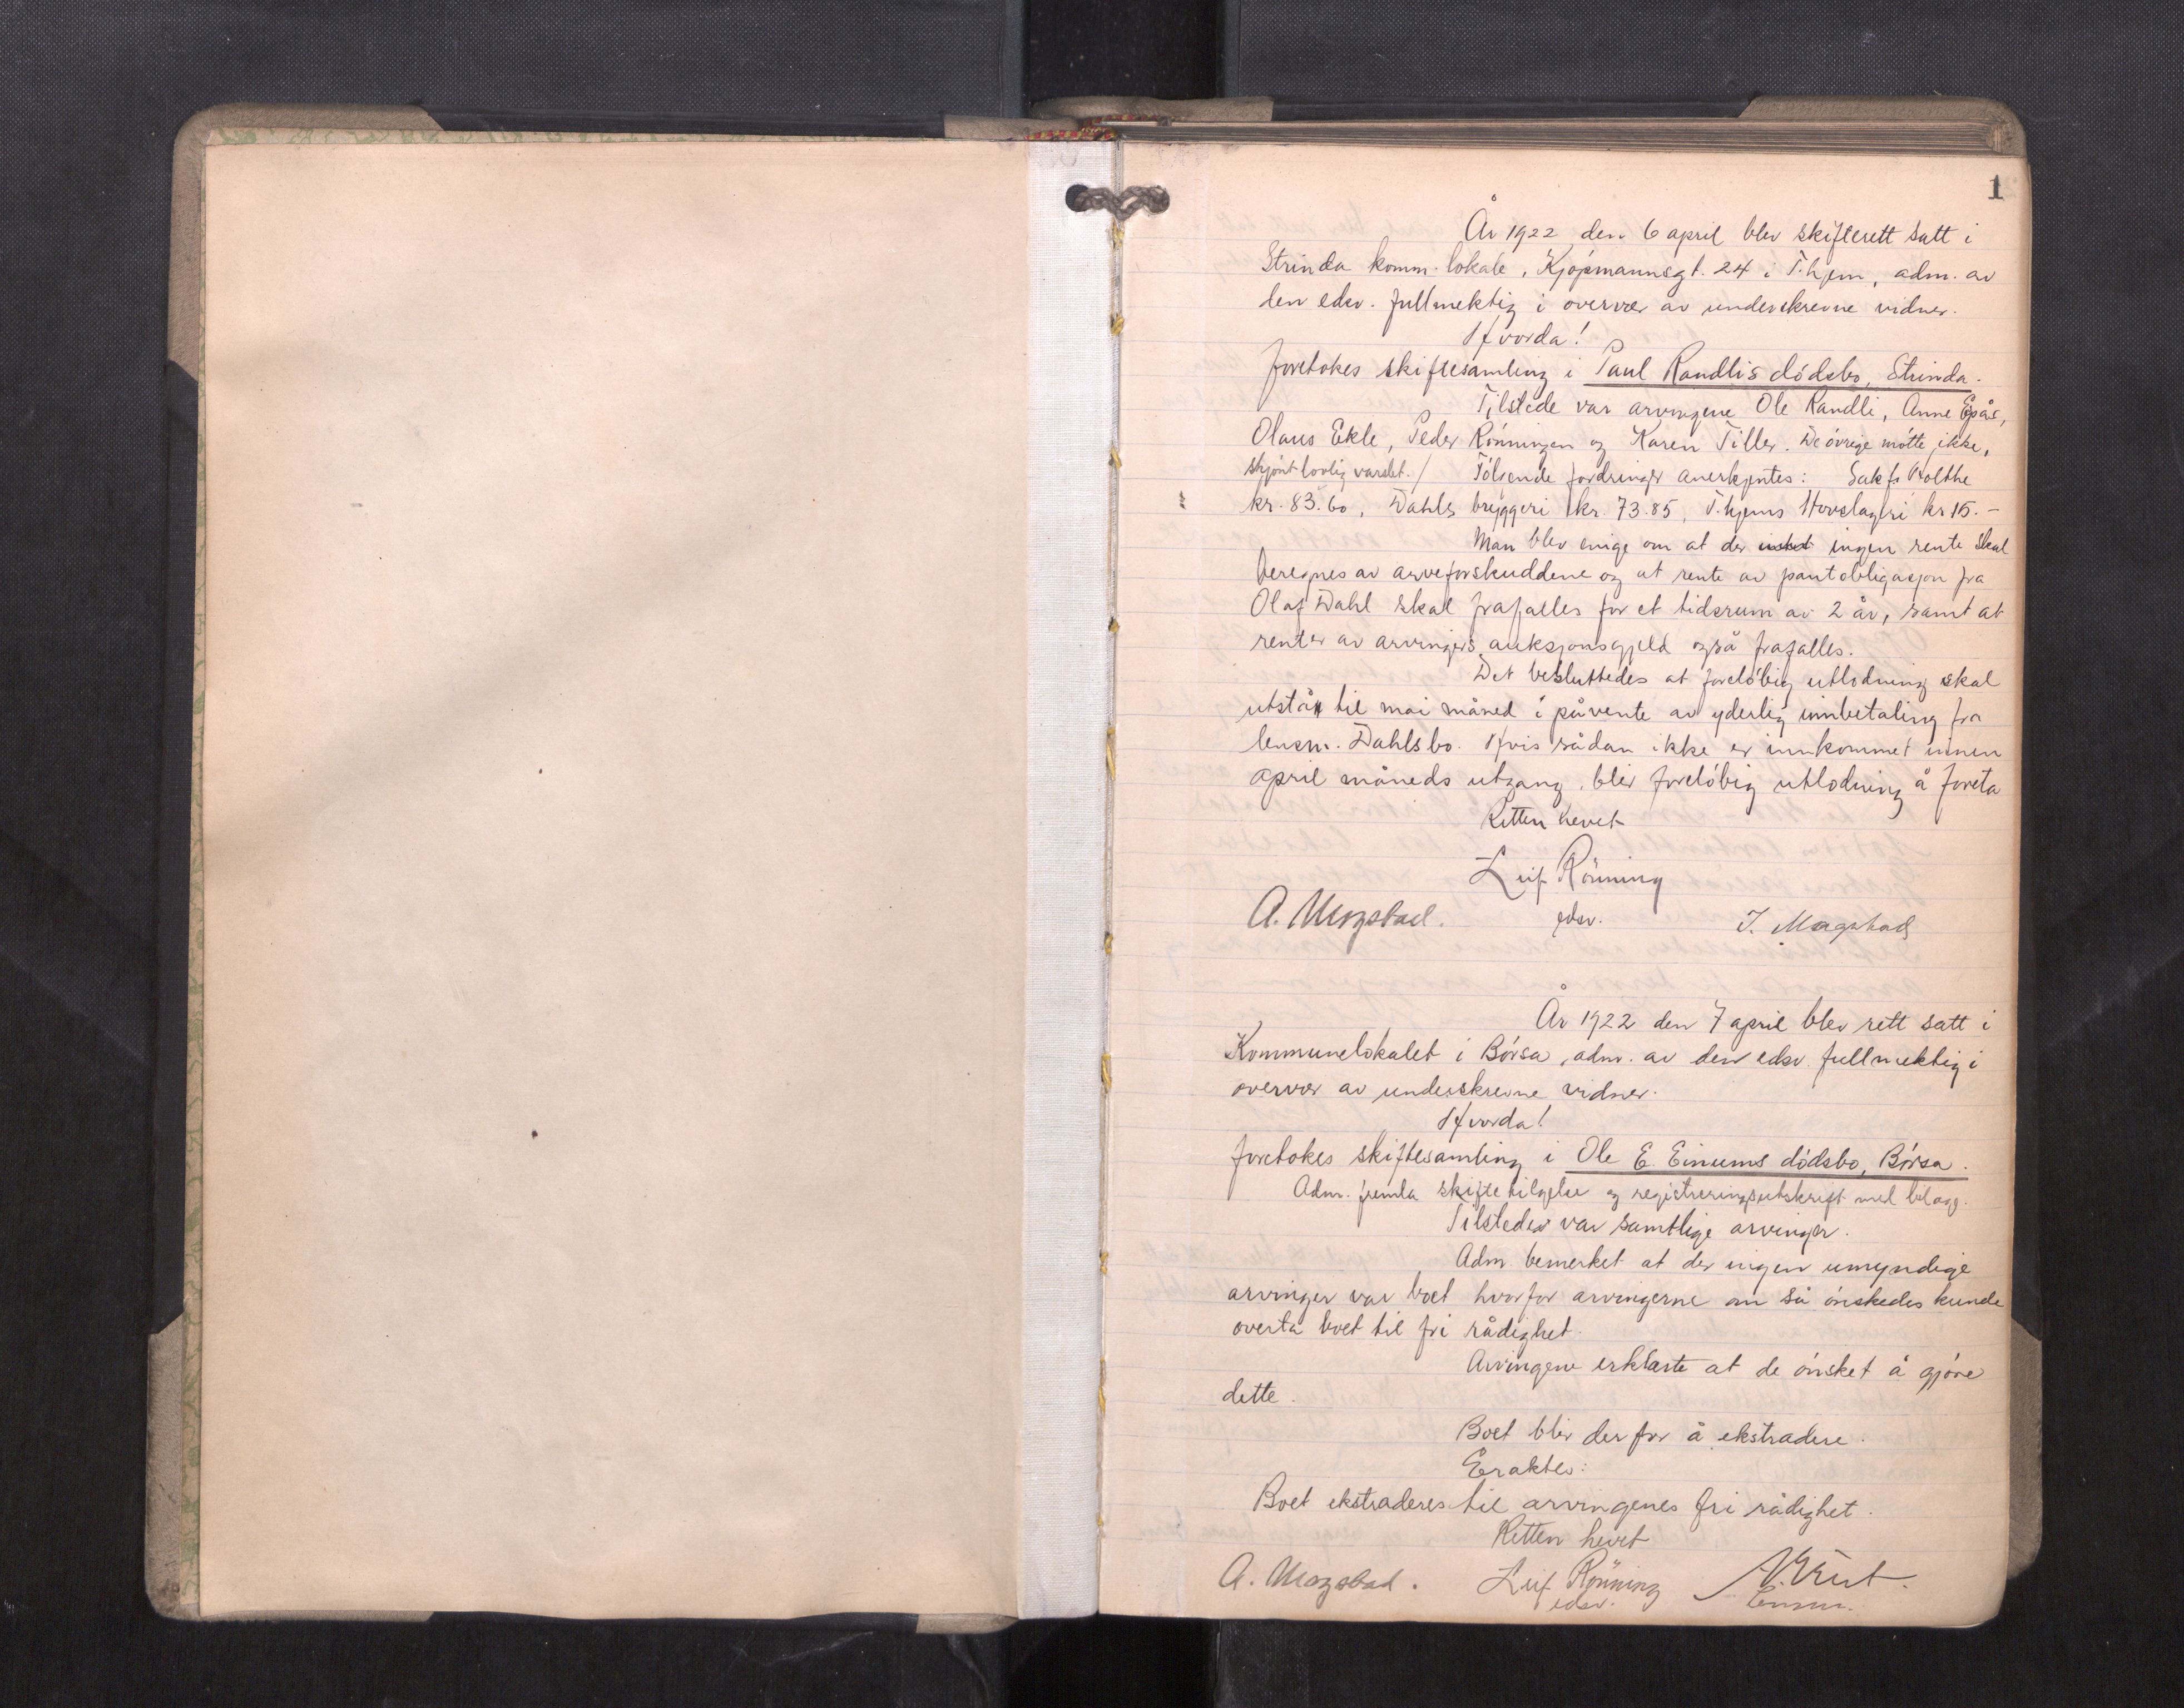 1
År 1922 den 6 april blev skifterett satt i
Strinda komm. lokale, Kjøpmannsgt. 24 i T.hjem, adm. av
den edsv. fullmektig i overvær av underskrevne vidner.
Hvorda!
foretokes skiftesamling i Paul Randlis dødsbo, Strinda.
Tilstede var arvingene Ole Randli, Anne Espås,
Olaus Ekle, Peder Rønningen og Karen Tiller. De øvrige møtte ikke,
skjønt lovlig varslet. / Følgende fordringer anerkjentes: Sakf. Rolthe
kr. 83.60, Dahls bryggeri kr. 73.85, T.hjems Hovslageri kr 15.-
Man blev enige om at der ingen rente skal
beregnes av arveforskuddene og at rente av pantobligasjon fra
Olaf Dahl skal frafalles for et tidsrum av 2 år, samt at
renter av arvingers auksjonsgjeld også frafalles.
Det besluttedes at foreløbig utlodning skal
utstå til mai måned i påvente av yderlig innbetaling fra
lensm. Dahls bo. Hvis sådan ikke er innkommet innen
april måneds utgang, blir foreløbig utlodning å foreta
Retten hevet
Leif Rønning
A. Mogstad. edsv. J. Magstad
År 1922 den 7 april blev rett satt i
Kommunelokalet i Børsa, adm. av den edsv. fullmektig i
overvær av underskrevne vidner.
Hvorda!
foretokes skiftesamling i Ole E. Einums dødsbo, Børsa.
Adm. fremla skiftetilgelse og registreringsutskrift med bilagg.
Tilstede var samtlige arvinger.
Adm. bemerket at der ingen umyndige
arvinger var boet hvorfor arvingerne om så ønskedes kunde
overta boet til fri rådighet.
Arvingene erklærte at de ønsket å gjøre
dette.
Boet blir derfor å ekstradere.
Eraktes:
Boet ekstraderes til arvingenes fri rådighet.
Retten hevet
A. Mogstad. Leif Rønning
edsv. lensm.